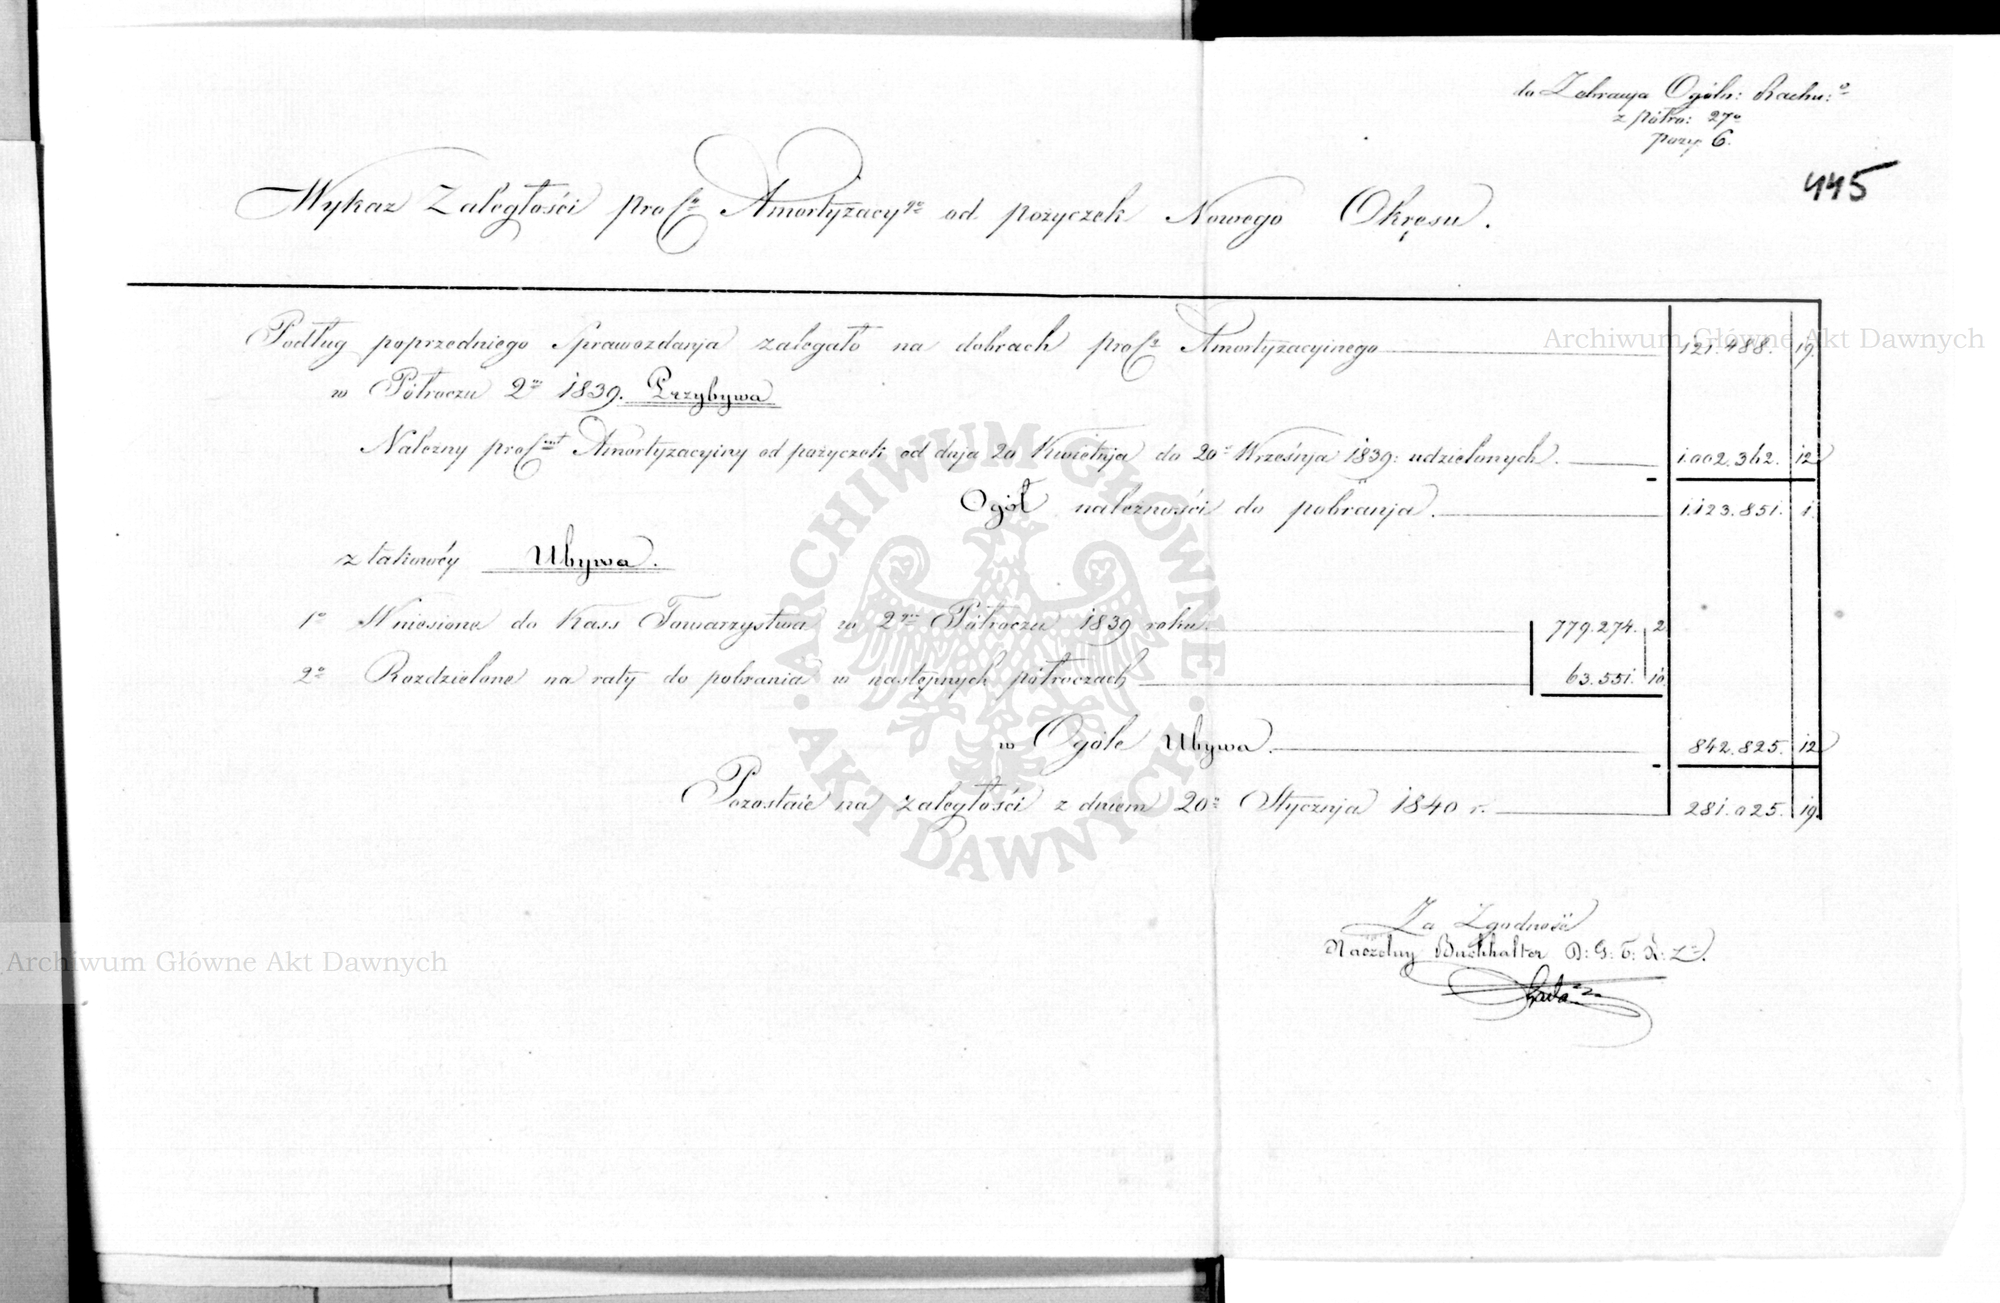 do Zebrania Ogóln: Rachu:
z półro: 27º
pozy 6.
445
Wykaz Zaległości proc. Amortyzacygo od pożyczek Nowego Okręsu.
Archiwum Główne Akt Dawnych
Podług poprzedniego Sprawozdanja zalegało na dobrach proc. Amortyzacyinego 121.488. 19.
w Półroczu 2m 1839. Przybywa
Należny procent Amortyzacyiny od pożyczek od dnja 20 Kwietnja do 20º Wrześnja 1839: udzielonych. 1.002.362. 12
Ogół należności do pobranja. 1.123.851. 1.
z takowéy Ubywa.
1º Wniesione do Kass Towarzystwa w 2gm Półroczu 1839 roku. 779.274. 2.
2º Rozdzielone na raty do pobrania w następnych półroczach 63.551. 10.
w Ogóle Ubywa. 842.825. 12
Pozostaie na zaległości z dniem 20º Stycznja 1840 r. 281.025. 19.
ARCHIWUM GŁÓWNE AKT DAWNYCH
Za Zgodność
Naczelny Buchhalter D: G: T: K: Zº.
Archiwum Główne Akt Dawnych